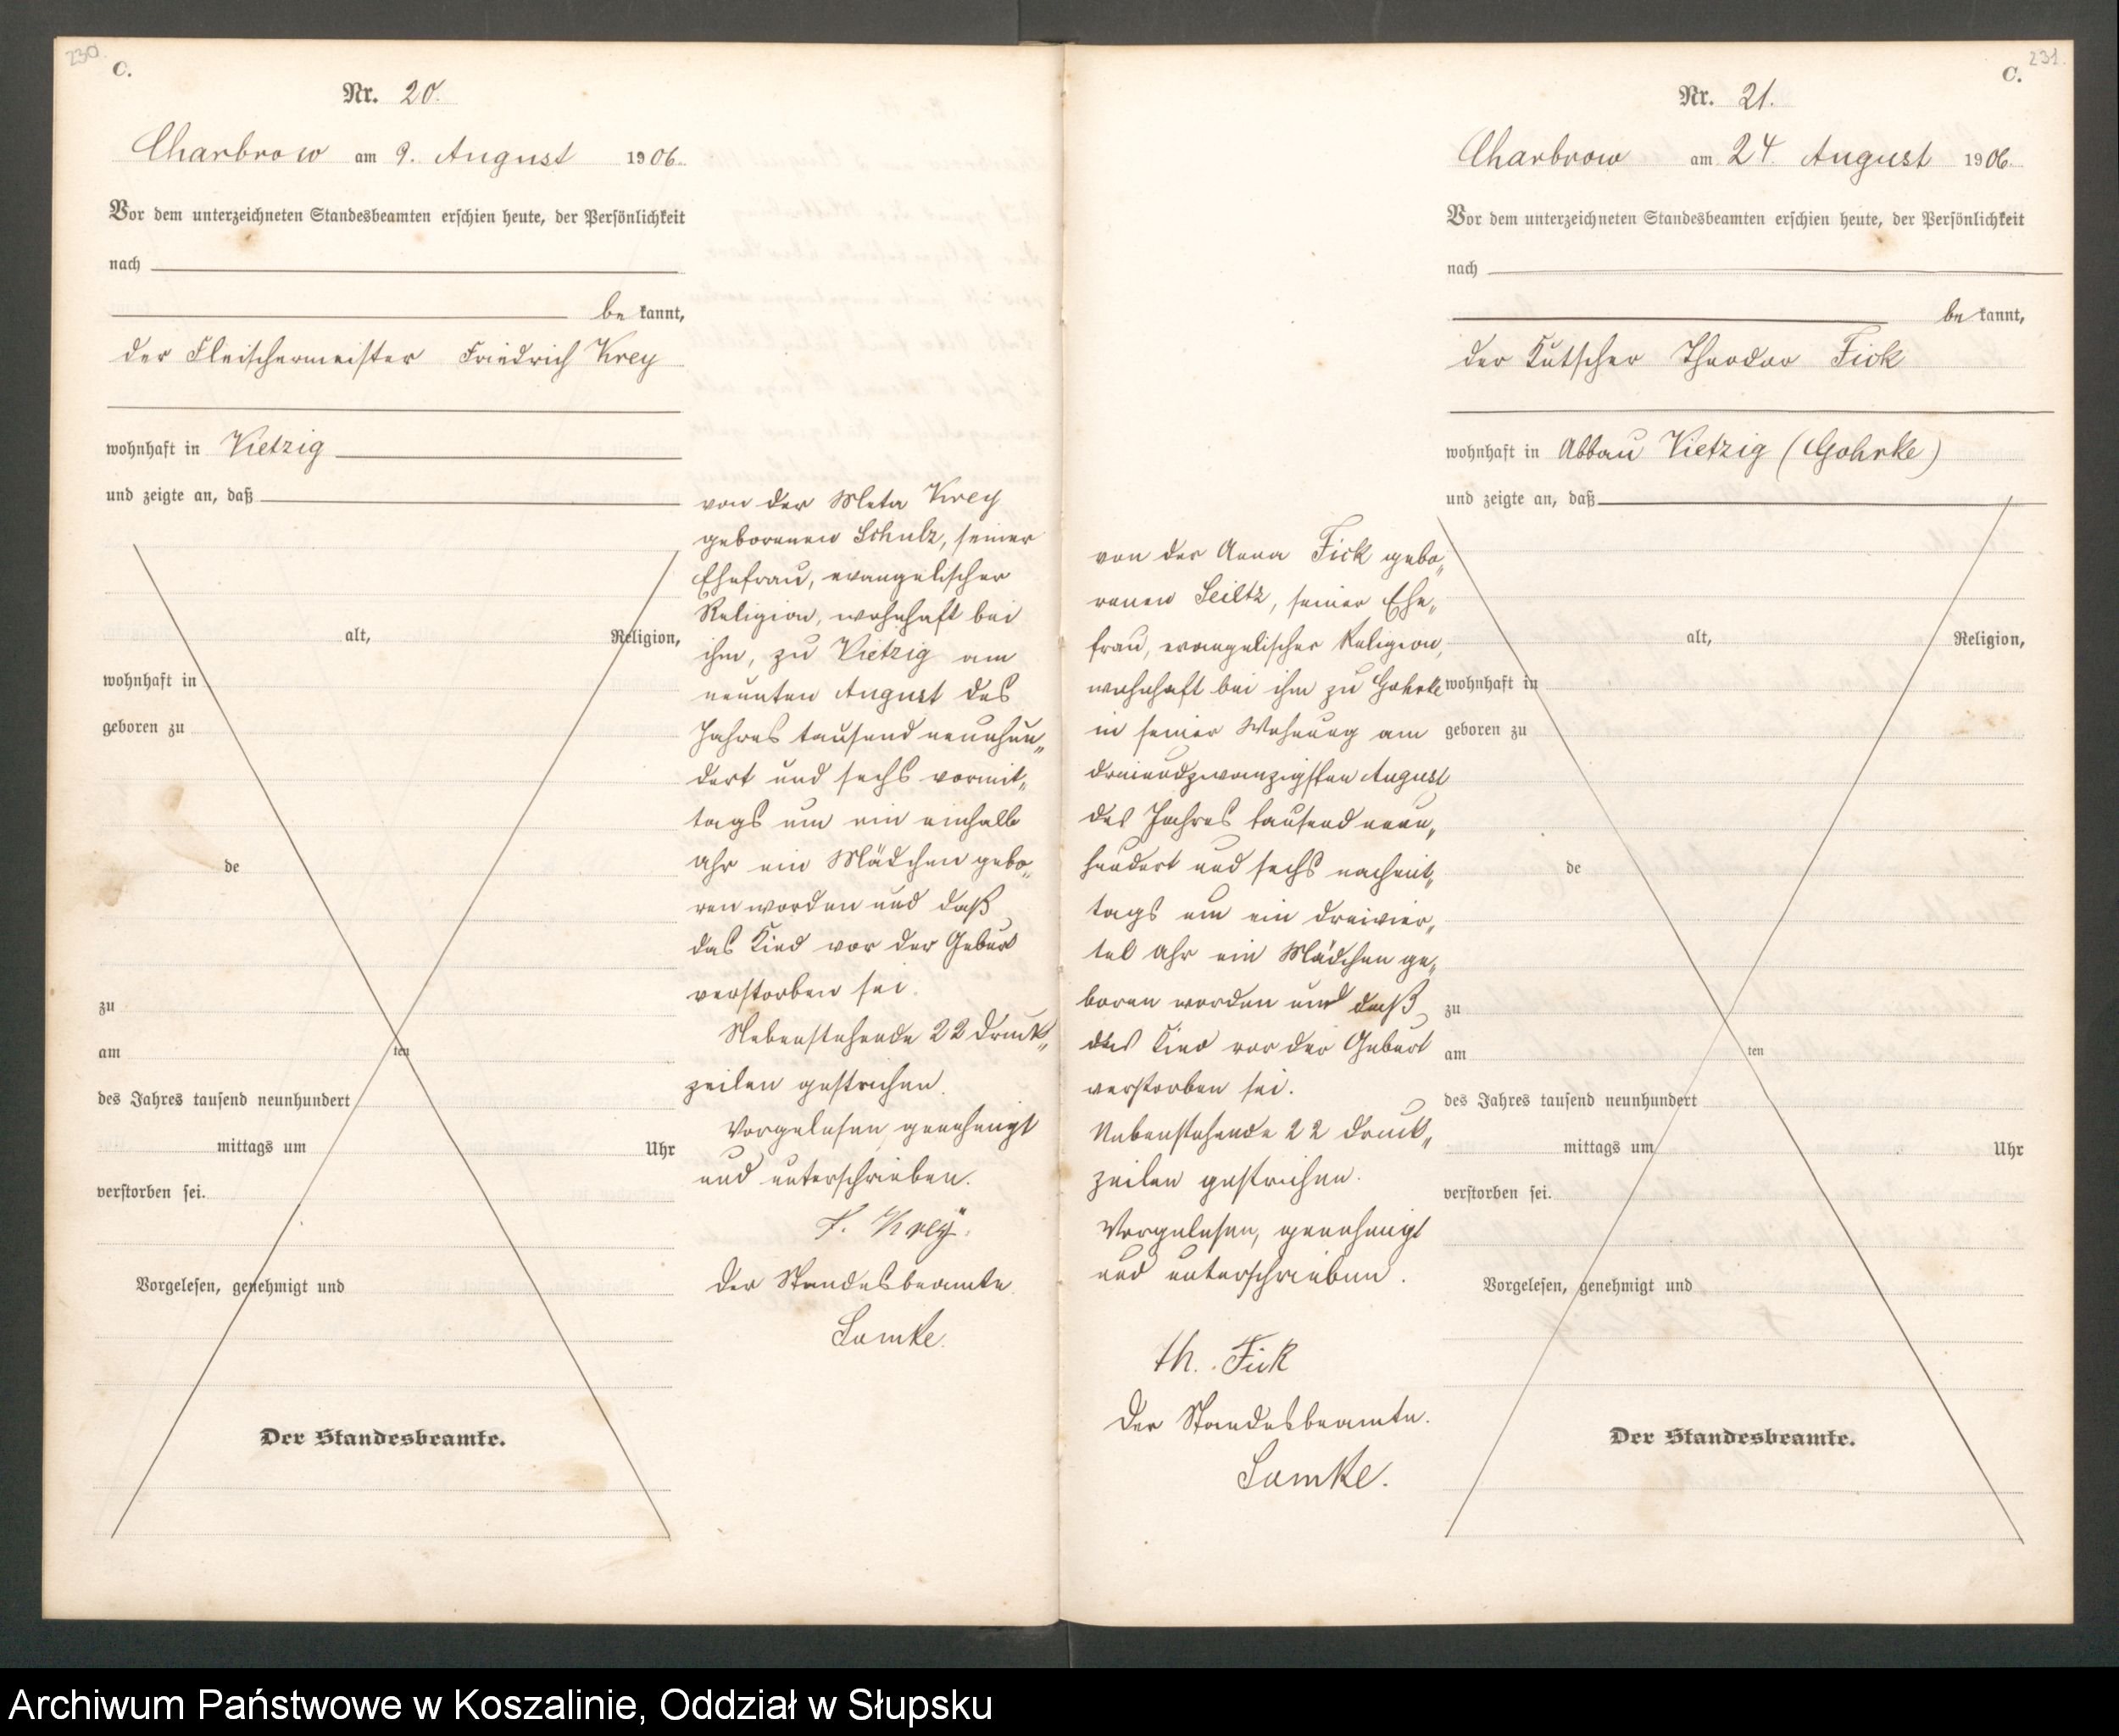 230.
C.
Nr. 20.
Charbrow am 9. August 1906.
Vor dem unterzeichneten Standesbeamten erschien heute, der Persönlichkeit
nach
be kannt,
der Fleischermeister Friedrich Krey
wohnhaft in Vietzig
und zeigte an, daß
alt, Religion,
wohnhaft in
geboren zu
de
zu
am ten
des Jahres tausend neunhundert
mittags um Uhr
verstorben sei.
Vorgelesen, genehmigt und
Der Standesbeamte.
von der Meta Krey
geborenen Schulz, seiner
Ehefrau, evangelischer
Religion, wohnhaft bei
ihm, zu Vietzig am
neunten August des
Jahres tausend neunhun„
dert und sechs vormit„
tags um ein einhalb
Uhr ein Mädchen gebo„
ren worden und daß
das Kind vor der Geburt
verstorben sei.
Nebenstehende 22 Druck„
zeilen gestrichen.
Vorgelesen, genehmigt
und unterschrieben.
F. Krey.
Der Standesbeamte.
Lamke.
231.
C.
Nr. 21.
Charbrow am 24. August 1906.
Vor dem unterzeichneten Standesbeamten erschien heute, der Persönlichkeit
nach
be kannt,
der Kutscher Theodor Fick
wohnhaft in Abbau Vietzig (Gohrke)
und zeigte an, daß
von der Anna Fick gebo„
renen Seiltz, seiner Ehe„
frau, evangelischer Religion,
wohnhaft bei ihm zu Gohrke
in seiner Wohnung am
dreiundzwanzigsten August
des Jahres tausend neun„
hundert und sechs nachmit„
tags um ein dreivier„
tel Uhr ein Mädchen ge„
boren worden und daß
das Kind vor der Geburt
verstorben sei.
Nebenstehende 22 Druck„
zeilen gestrichen.
Vorgelesen, genehmigt
und unterschrieben.
Th. Fick
Der Standesbeamte.
Lamke.
alt, Religion,
wohnhaft in
geboren zu
de
zu
am ten
des Jahres tausend neunhundert
mittags um Uhr
verstorben sei.
Vorgelesen, genehmigt und
Der Standesbeamte.
Archiwum Państwowe w Koszalinie, Oddział w Słupsku